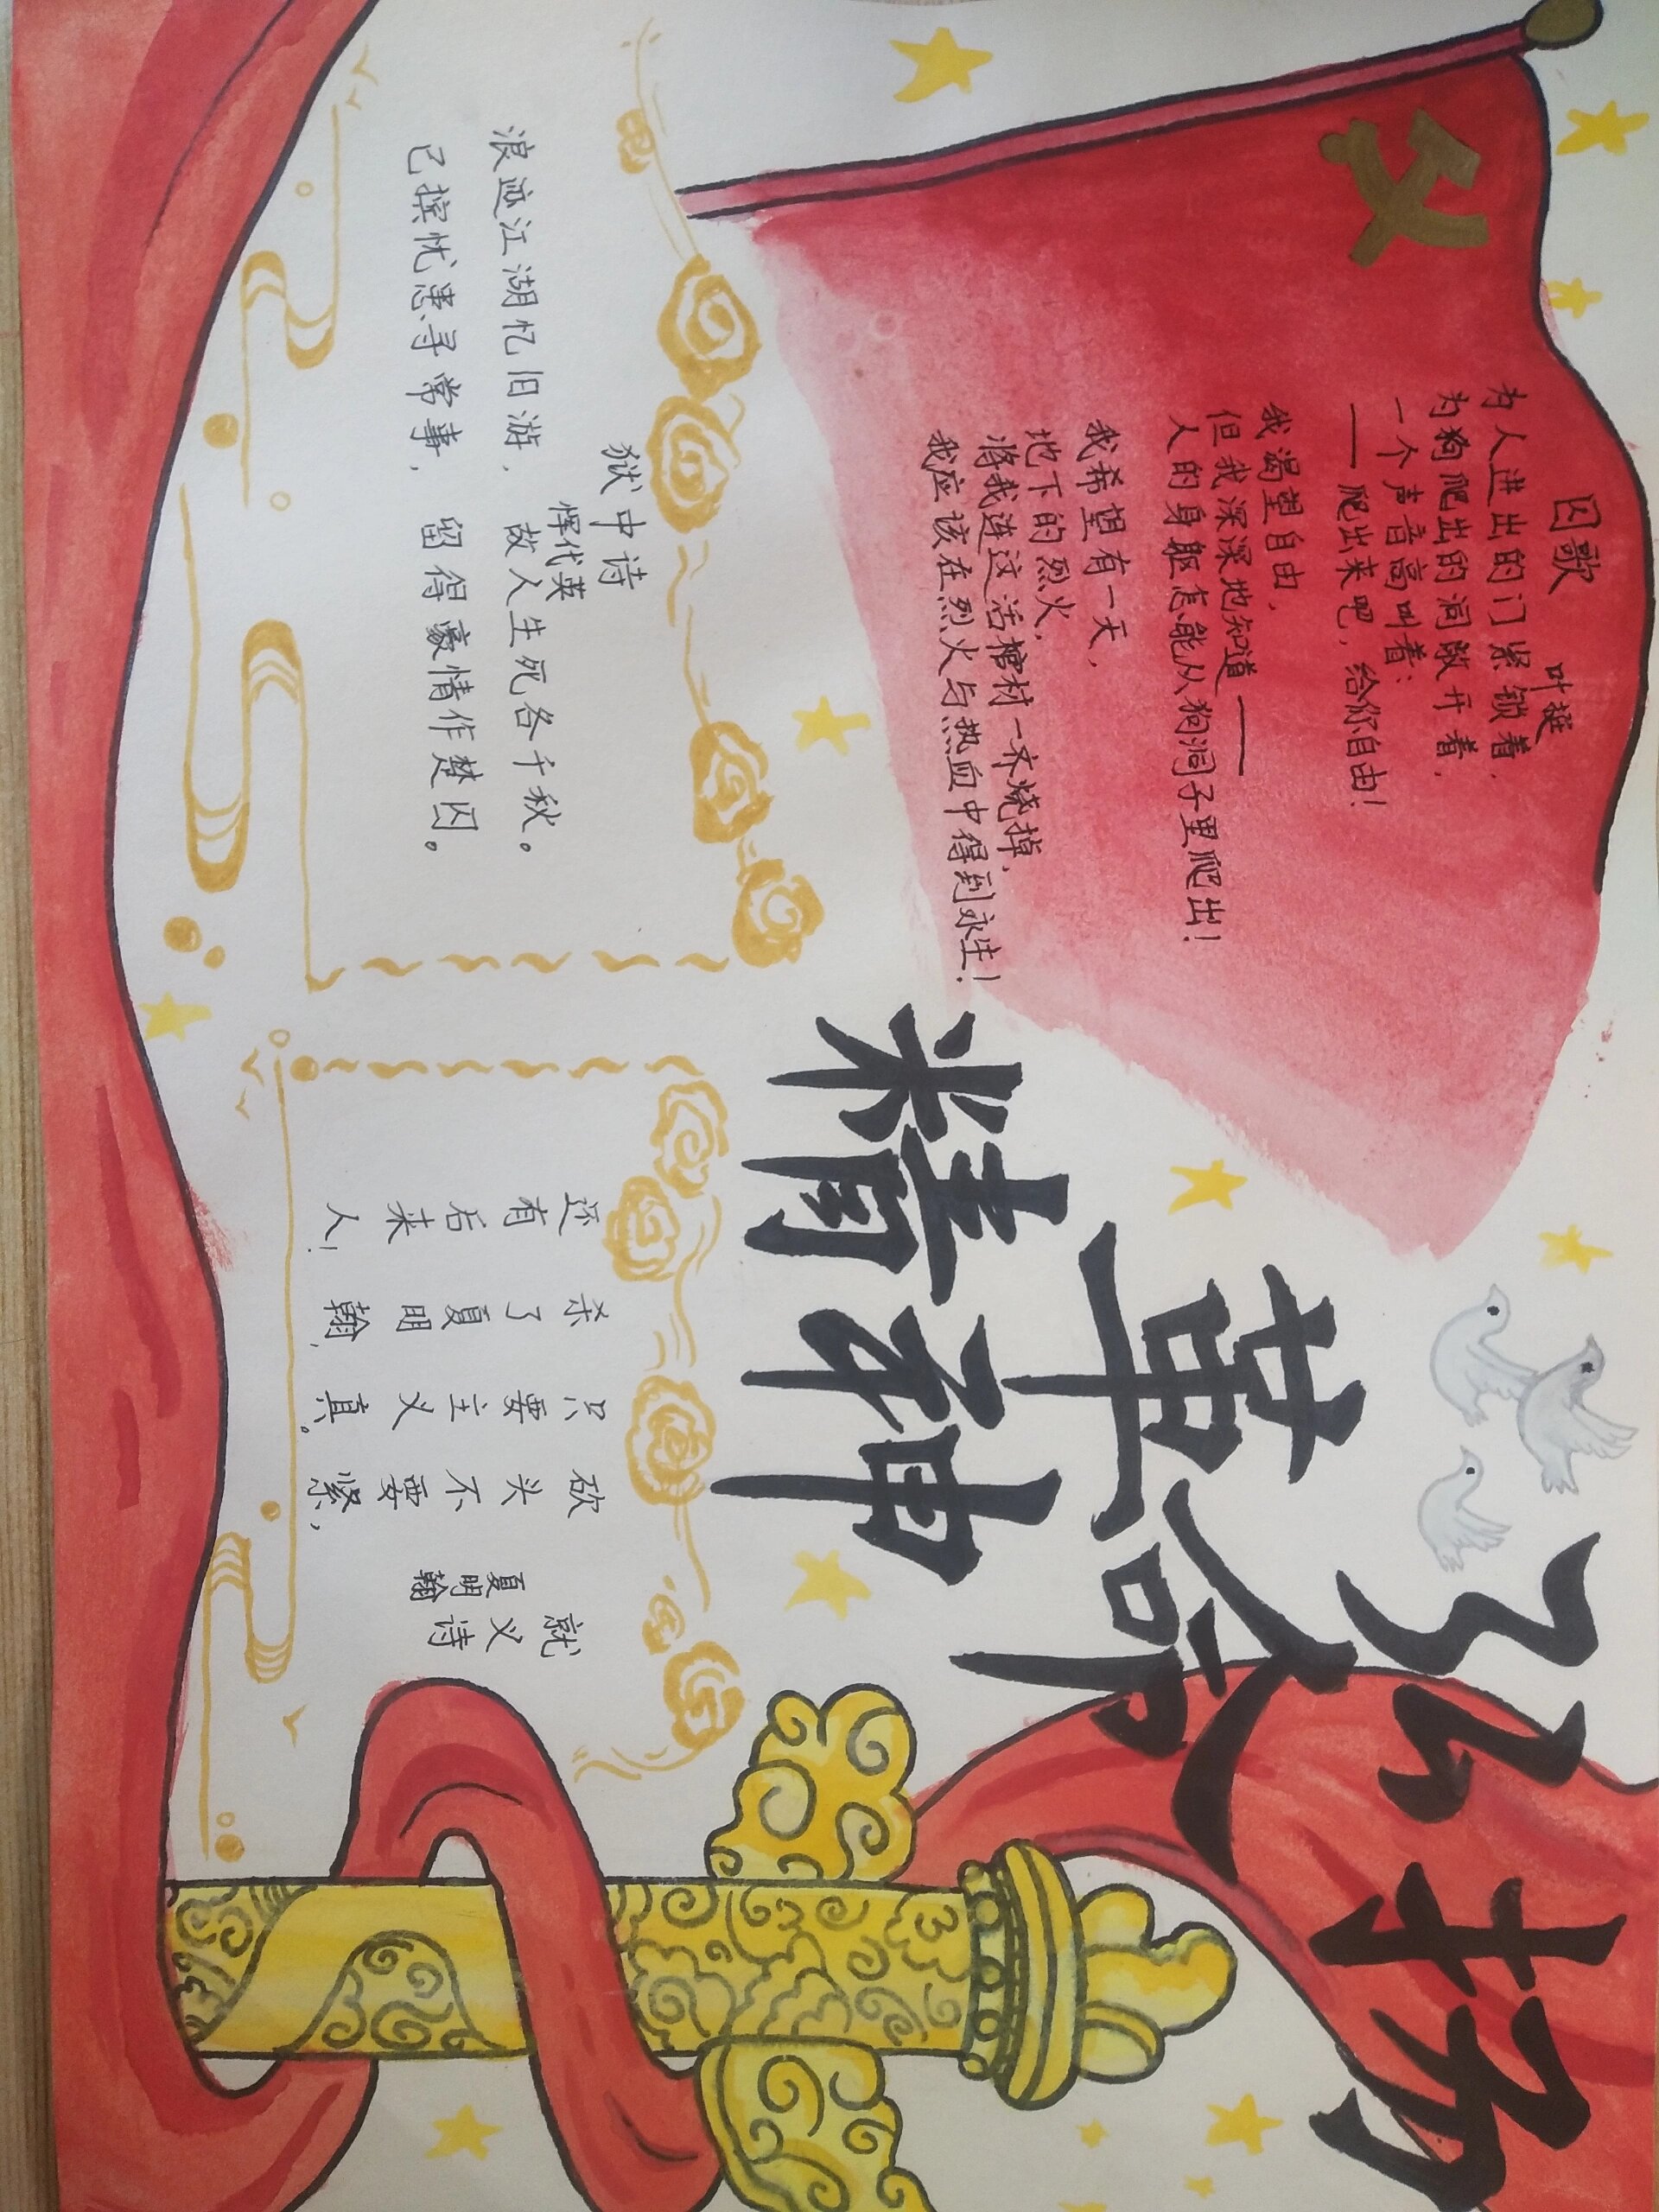 弘扬
革命
精神
囚歌
叶挺
为人进出的门紧锁着,
为狗爬出的洞敞开着,
一个声音高叫着:
——爬出来吧,给你自由!
我渴望自由,
但我深深地知道——
人的身躯怎能从狗洞子里爬出!
我希望有一天,
地下的烈火,
将我连这活棺材一齐烧掉,
我应该在烈火与热血中得到永生!
狱中诗
恽代英
浪迹江湖忆旧游,故人生死各千秋。
已摈忧患寻常事,留得豪情作楚囚。
就义诗
夏明翰
砍头不要紧,
只要主义真。
杀了夏明翰,
还有后来人!